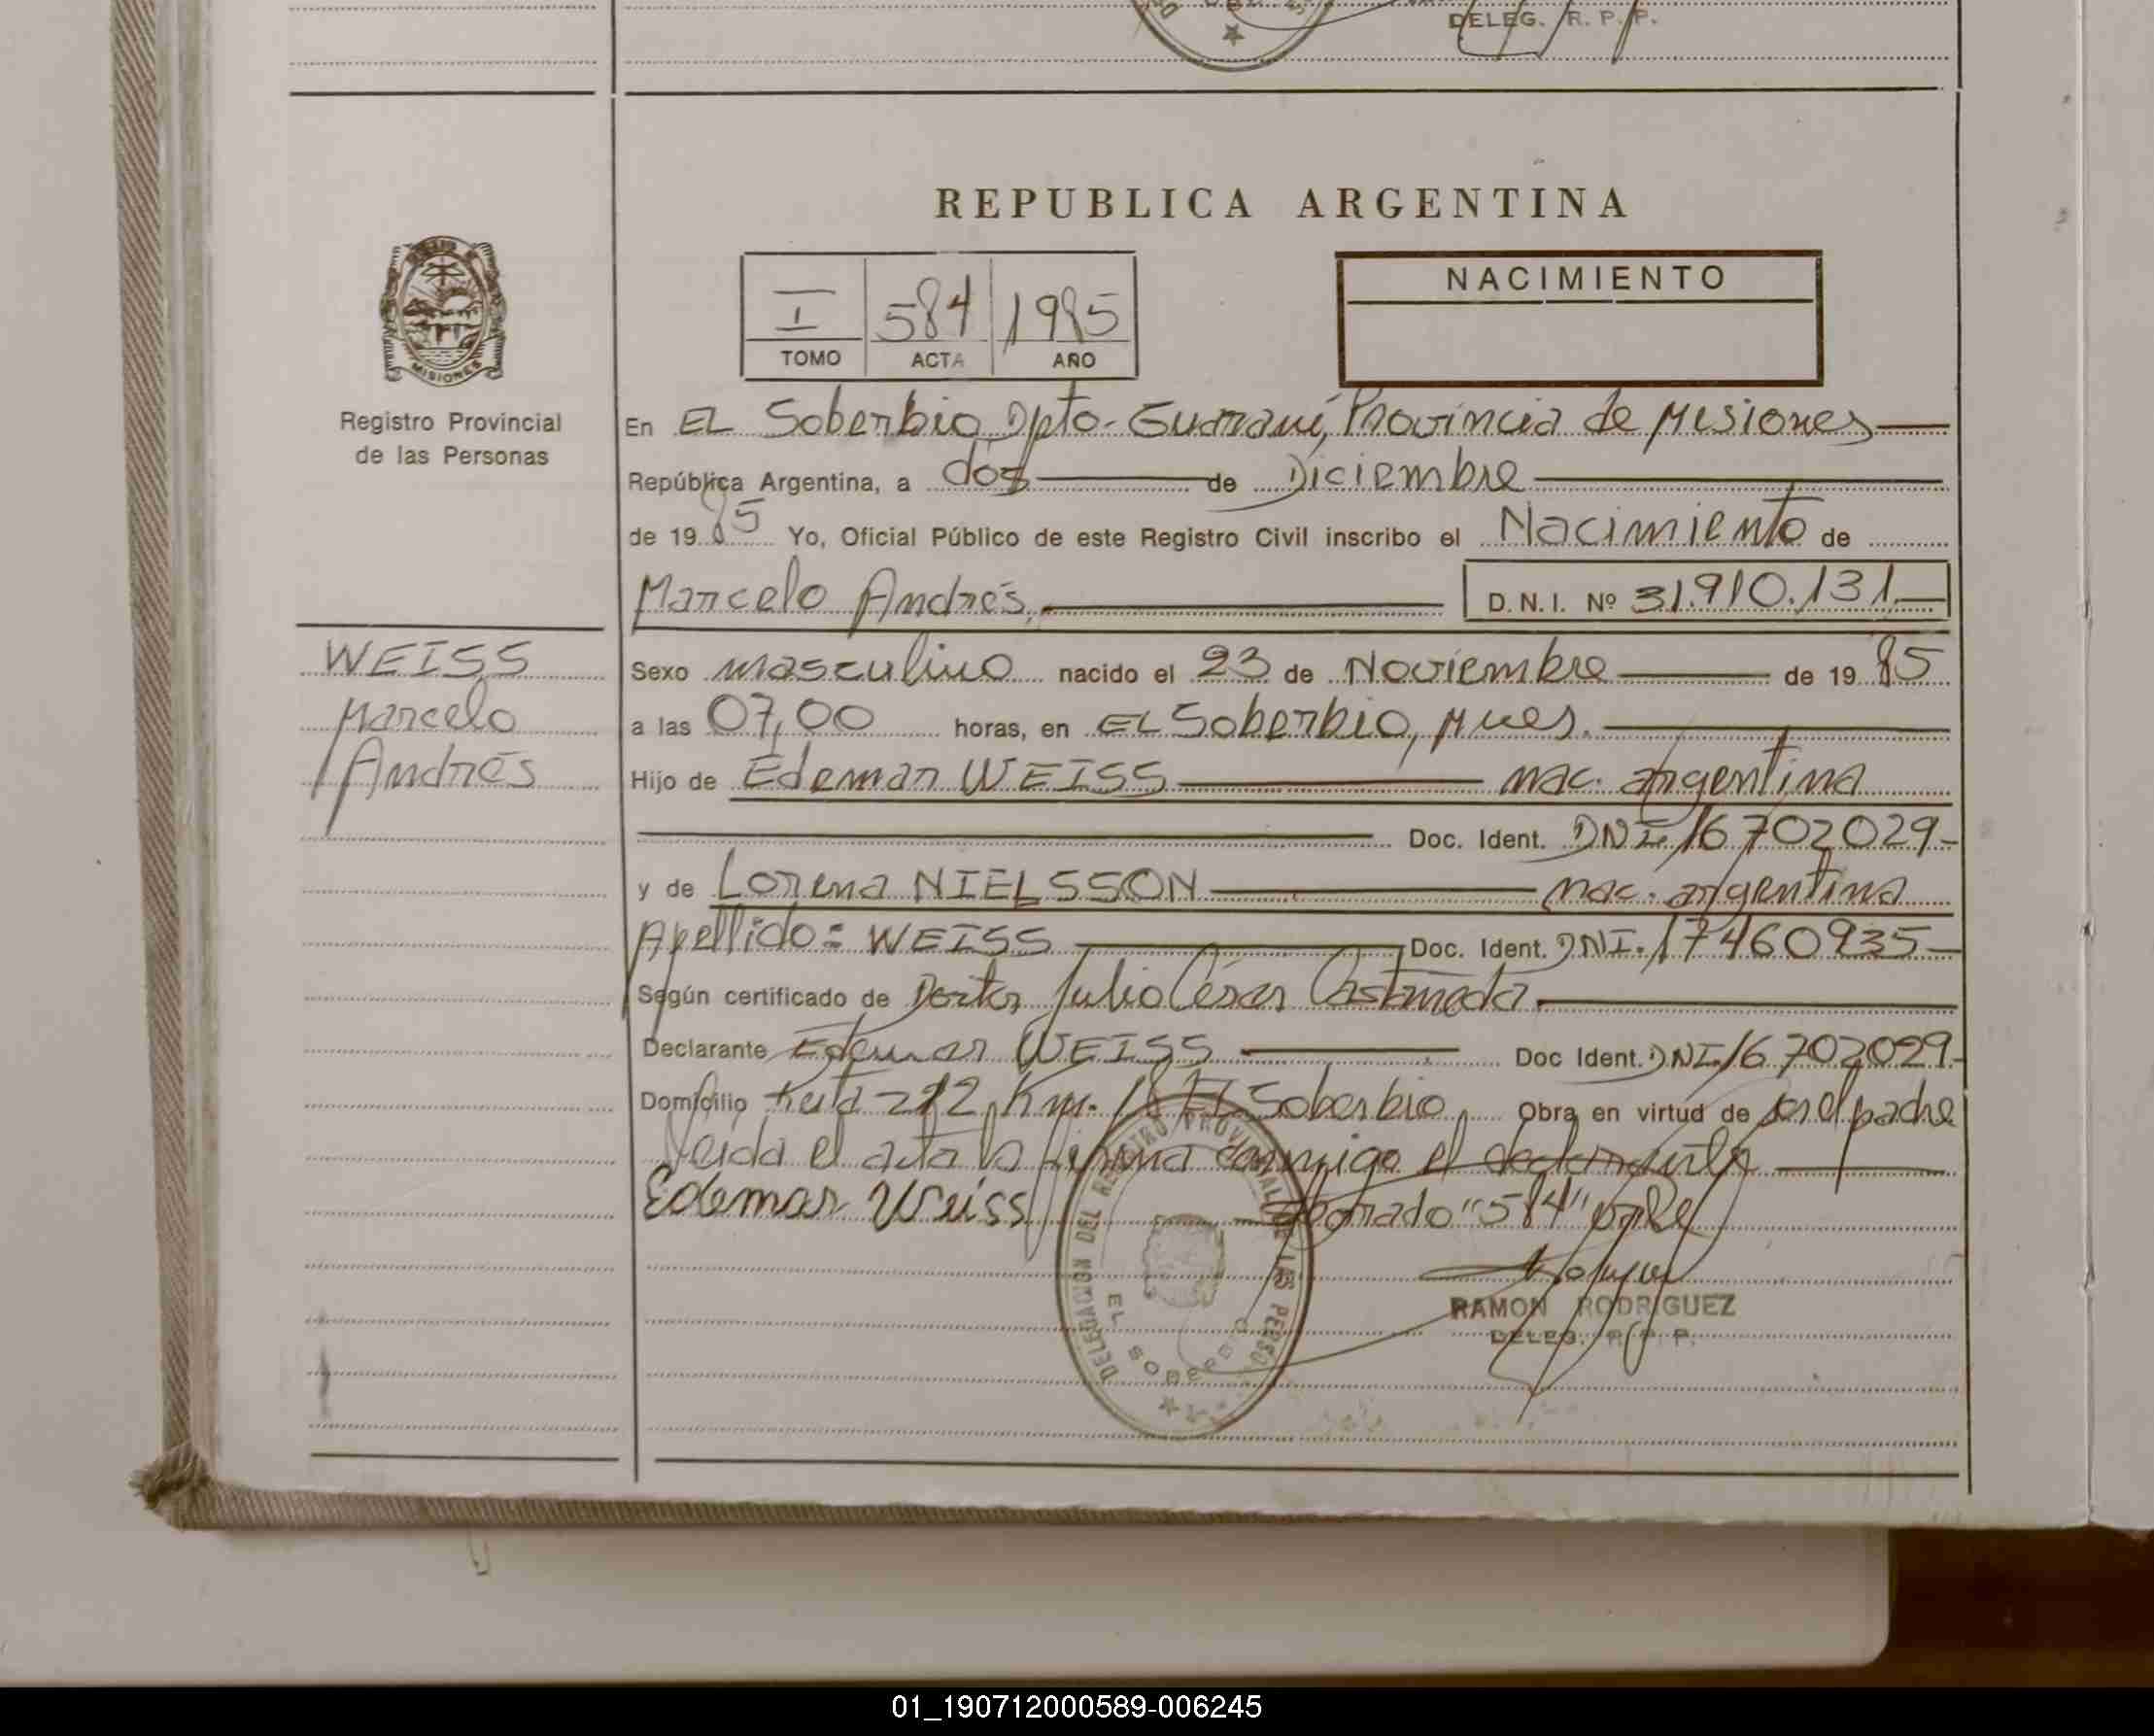 DELEG. R. P. P.
REPUBLICA ARGENTINA
I 584 1985
TOMO ACTA AÑO
NACIMIENTO
MISIONES
Registro Provincial
de las Personas
En EL Soberbio Dpto- Guaraní, Provincia de Misiones
República Argentina, a dos de Diciembre
de 1985 Yo, Oficial Público de este Registro Civil inscribo el Nacimiento de
Marcelo Andrés. D.N.I. Nº 31.910.131
WEISS
Marcelo
Andrés
Sexo masculino nacido el 23 de Noviembre de 1985
a las 07,00 horas, en EL Soberbio, Mnes.
Hijo de Edemar WEISS nac. argentina
Doc. Ident. DNI. 16702029-
y de Lorena NIELSSON nac. argentina
Apellido= WEISS Doc. Ident. DNI. 17460935-
Según certificado de Doctor Julio César Castameda
Declarante Edemar WEISS Doc Ident. DNI. 16702029-
Domicilio Ruta 212 Km. 18 El Soberbio Obra en virtud de ser el padre
Leida el acta la firma conmigo el declarante
Edemar Weiss
borrado "584" vale
DELEGACION DEL REGISTRO PROVINCIAL DE LAS PERSO
EL SOBERBIO
RAMON RODRIGUEZ
DELEG. R. P. P.
01_190712000589-006245